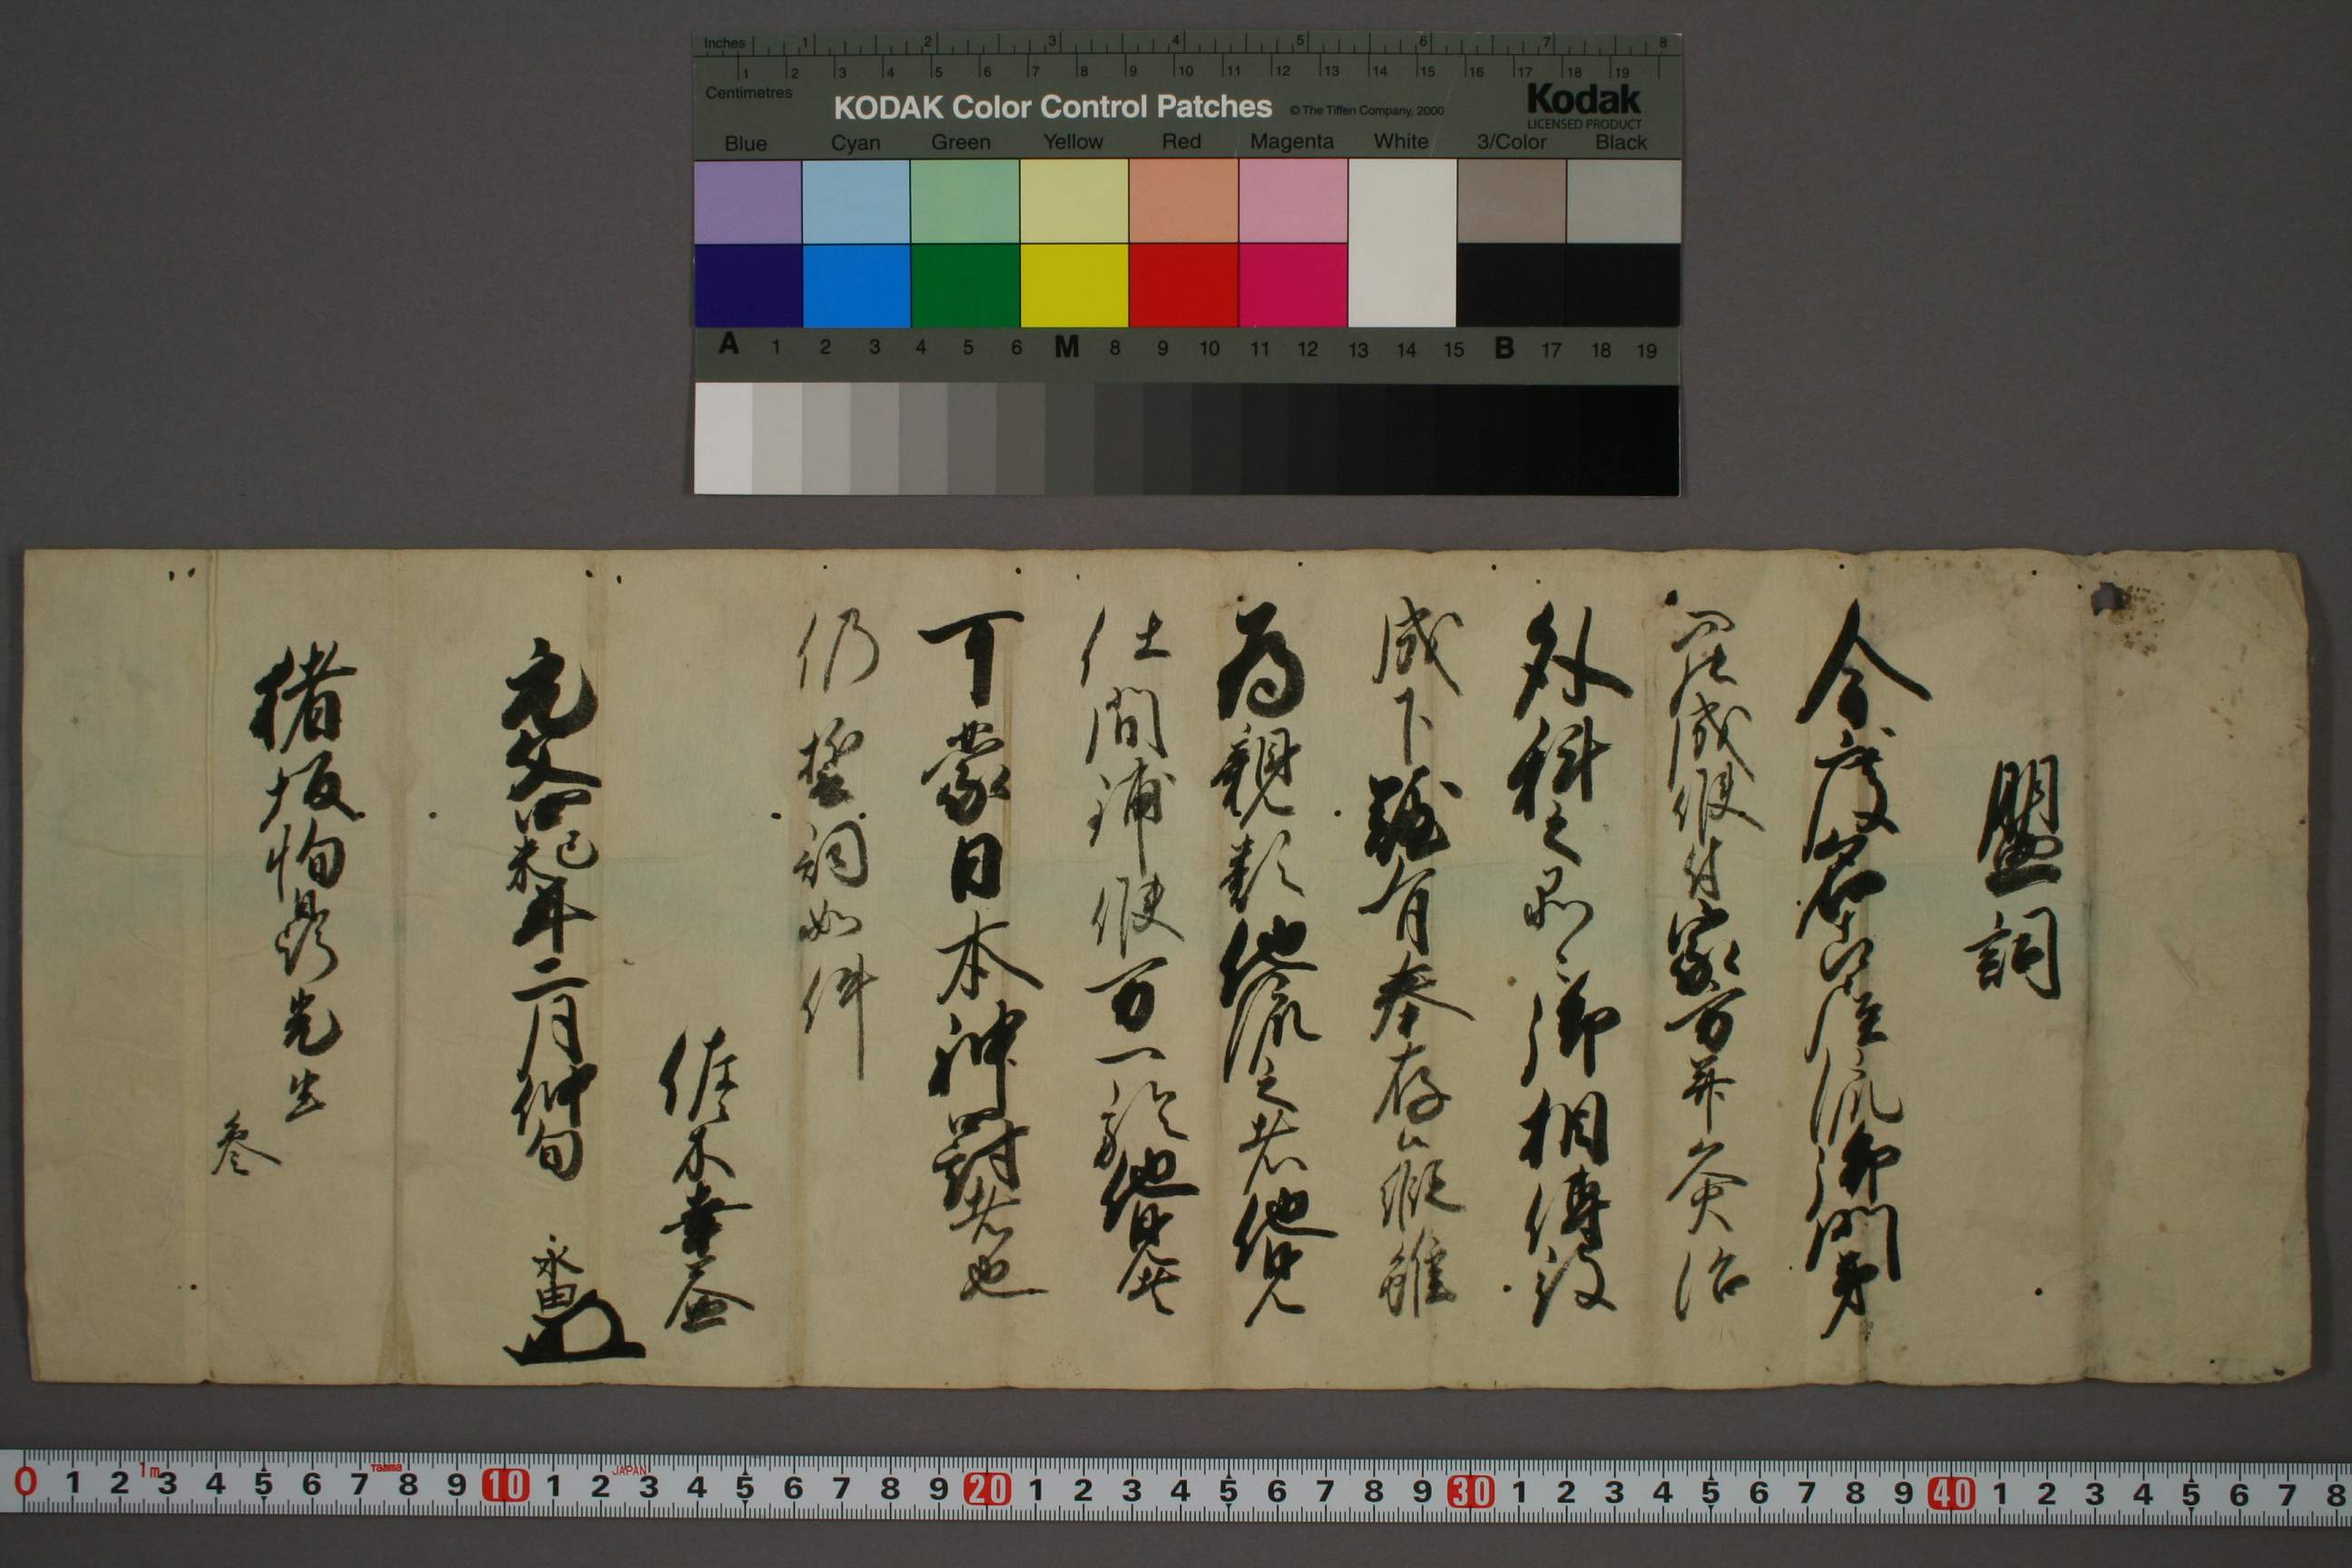 Inches 1 2 3 4 5 6 7 8
1 2 3 4 5 6 7 8 9 10 11 12 13 14 15 16 17 18 19
Centimetres
KODAK Color Control Patches © The Tiffen Company, 2000
Kodak
LICENSED PRODUCT
Blue Cyan Green Yellow Red Magenta White 3/Color Black
A 1 2 3 4 5 6 M 8 9 10 11 12 13 14 15 B 17 18 19
盟詞
今度 流御門弟
罷成候付家方并灸治
外科之品々御相傳被
成下難有奉存候縦雖
為親類他流之者他見
仕間鋪候万一於他見
可蒙日本神罰者也
仍誓詞如件
佐々木幸益
元文四己未年二月仲旬 永由
猪坂 先生
参
0 1 2 1m 3 4 5 6 7 Tajima 8 9 10 1 2 JAPAN 3 4 5 6 7 8 9 20 1 2 3 4 5 6 7 8 9 30 1 2 3 4 5 6 7 8 9 40 1 2 3 4 5 6 7 8